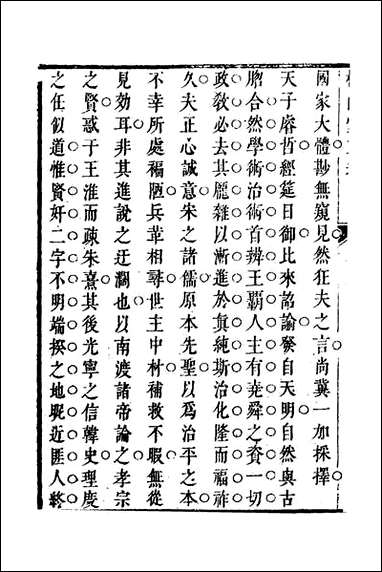 國家大體尠無窺見然狂夫之言尚冀一加採擇
天子睿哲經筵日御比來詔諭發自天明自然與古
脗合然學術治術首辨王覇人主有堯舜之資一切
政敎必去其厖雜以漸進於眞純斯治化隆而福祚
久夫正心誠意宋之諸儒原本先聖以為治平之本
不幸所處福陋兵革相尋世主中材補救不暇無從
見効耳非其進說之迂濶也以南渡諸帝論之孝宗
之賢惑于王淮而疎朱熹其後光寧之信韓史理度
之任似道惟賢奸二字不明端揆之地昵近匪人終